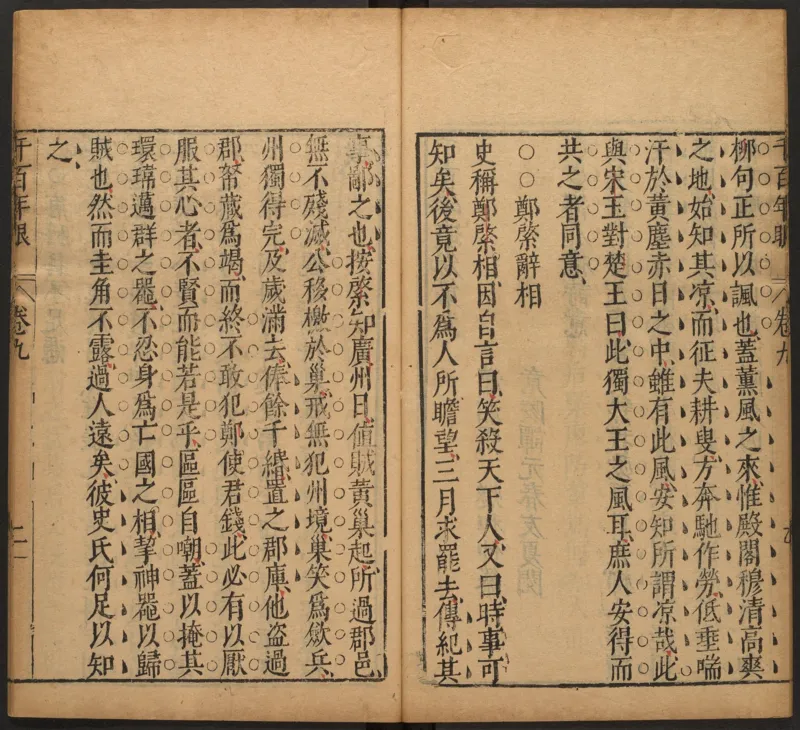 千百年眼 卷九
柳句正所以諷也蓋薰風之來惟殿閣穆清高爽
之地始知其凉而征夫耕叟方奔馳作勞低垂喘
汗於黃塵赤日之中雖有此風安知所謂凉哉此
與宋玉對楚王曰此獨大王之風耳庶人安得而
共之者同意
○○鄭綮辭相
史稱鄭綮相因自言曰笑殺天下人又曰時事可
知矣後竟以不爲人所瞻望三月求罷去傳紀其
事鄙之也按綮知廣州日值賊黃巢起所過郡邑
無不殘滅公移檄於巢戒無犯州境巢笑爲歛兵
州獨得完及歲滿去俸餘千緡置之郡庫他盗過
郡帑藏爲竭而終不敢犯鄭使君錢此必有以厭
服其心者不賢而能若是乎區區自嘲蓋以掩其
環瑋邁群之噐不忍身爲亡國之相挈神噐以歸
賊也然而圭角不露過人遠矣彼史氏何足以知
之
千百年眼 卷九